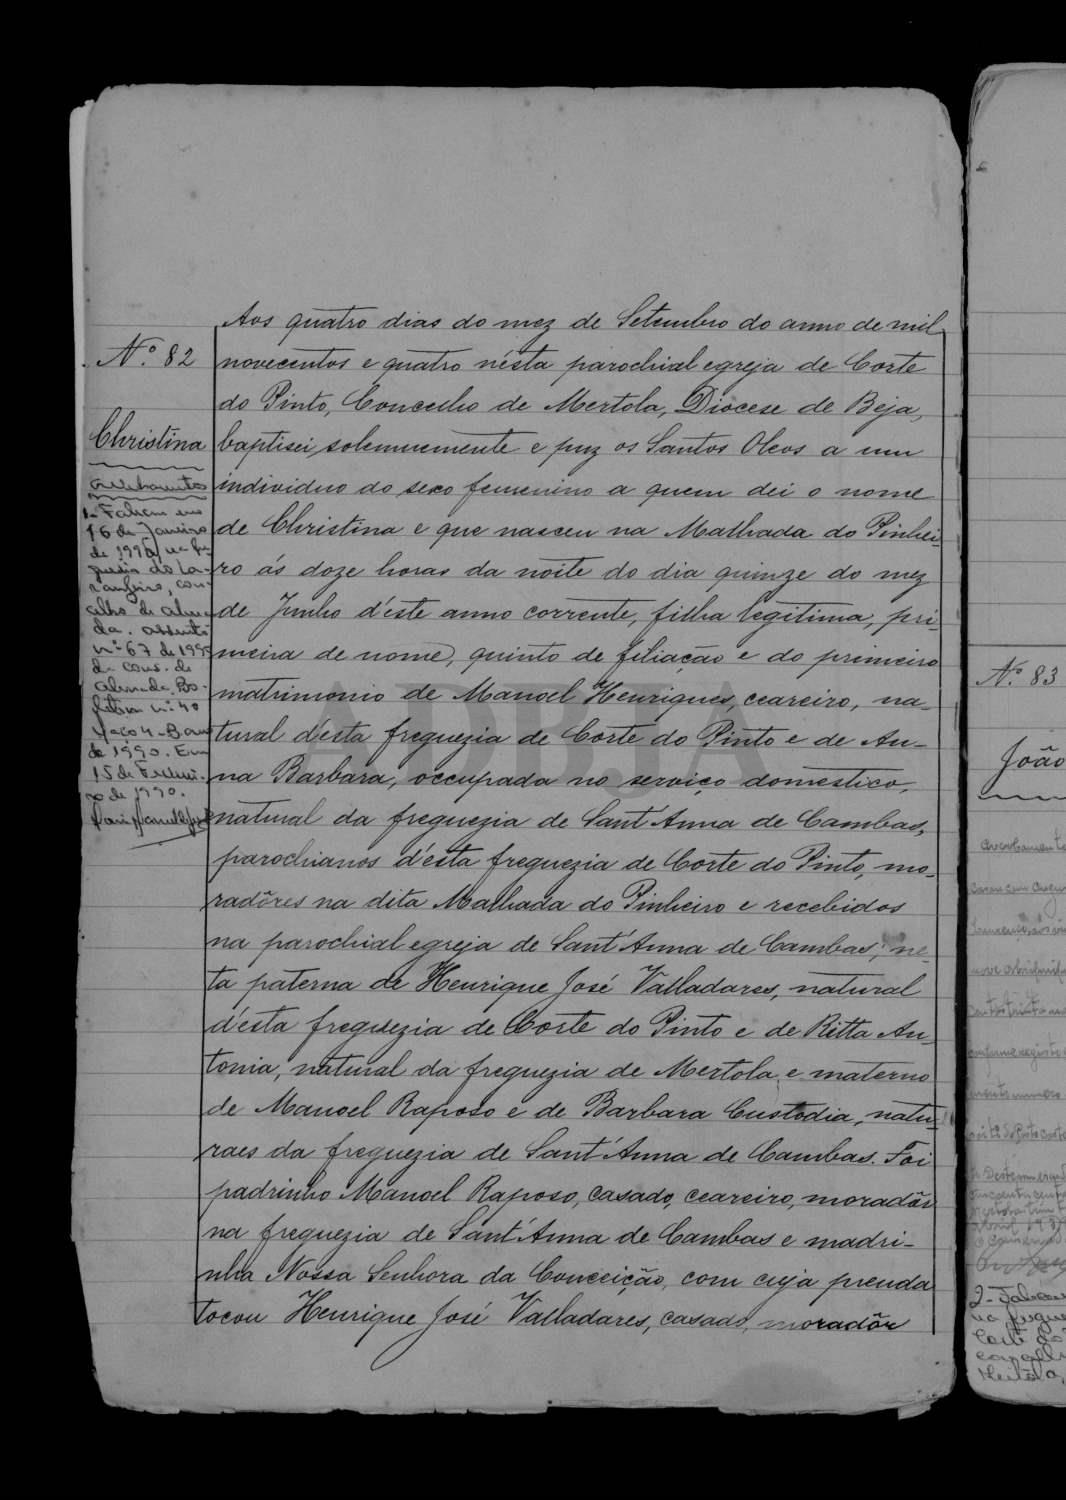 Nº 82
Christina
Averbamentos
1- Faleceu em
16 de Janeiro
de 1990 na fre
guesia do La-
ranjeiro, con-
celho de Alma
da. Assento
nº 67 de 1990
da Cons. de
Almada. Bo-
letim nº 40
Maço 4. Ano
de 1990. Em
15 de Feverei-
ro de 1990.
Aos quatro dias do mez de Setembro do anno de mil
novecentos e quatro n'ésta parochial egreja de Corte
do Pinto, Concelho de Mertola, Diocese de Beja,
baptisei, solemnemente e puz os Santos Oleos a um
individuo do sexo femenino a quem dei o nome
de Christina e que nasceu na Malhada do Pinhei-
ro ás doze horas da noite do dia quinze do mez
de Junho d'éste anno corrente, filha legitima, pri-
meira de nome, quinto de filiação e do primeiro
matrimonio de Manoel Henriques, ceareiro, na-
tural d'ésta freguezia de Corte do Pinto e de An-
na Barbara, occupada no serviço domestico,
natural da freguezia de Sant'Anna de Cambas,
parochianos d'ésta freguezia de Corte do Pinto, mo-
radôres na dita Malhada do Pinheiro e recebidos
na parochial egreja de Sant'Anna de Cambas; ne-
ta paterna de Henrique José Valladares, natural
d'ésta freguezia de Corte do Pinto e de Ritta An-
tonia, natural da freguezia de Mertola e materno
de Manoel Raposo e de Barbara Custodia, natu-
raes da freguezia de Sant'Anna de Cambas. Foi
padrinho Manoel Raposo, casado, ceareiro, moradôr
na freguezia de Sant'Anna de Cambas e madri-
nha Nossa Senhora da Conceição, com cuja prenda
tocou Henrique José Valladares, casado, moradôr
Nº 83
João